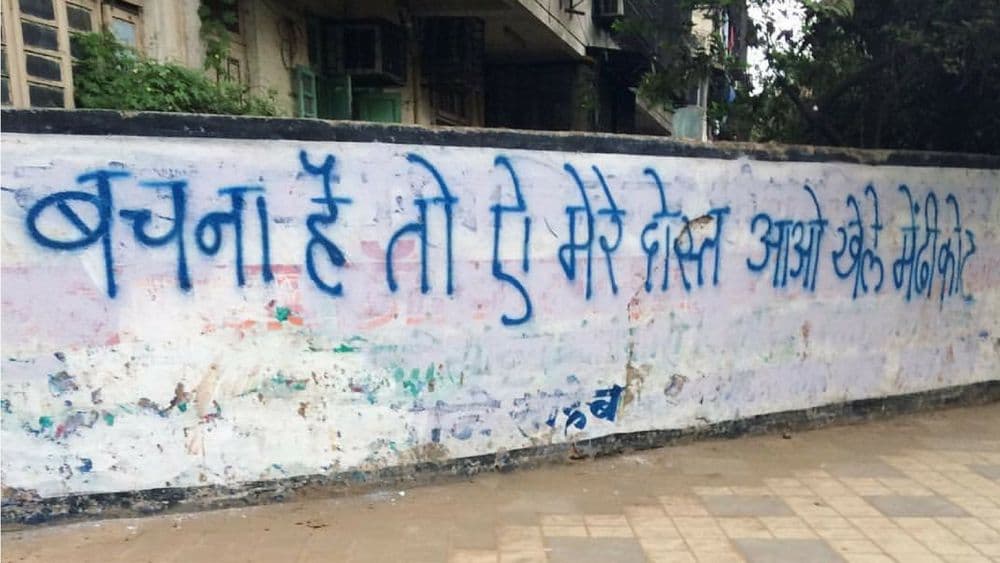 बचना हैं तो ऐ मेरे दोस्त आओ खेले मेंढीकोट